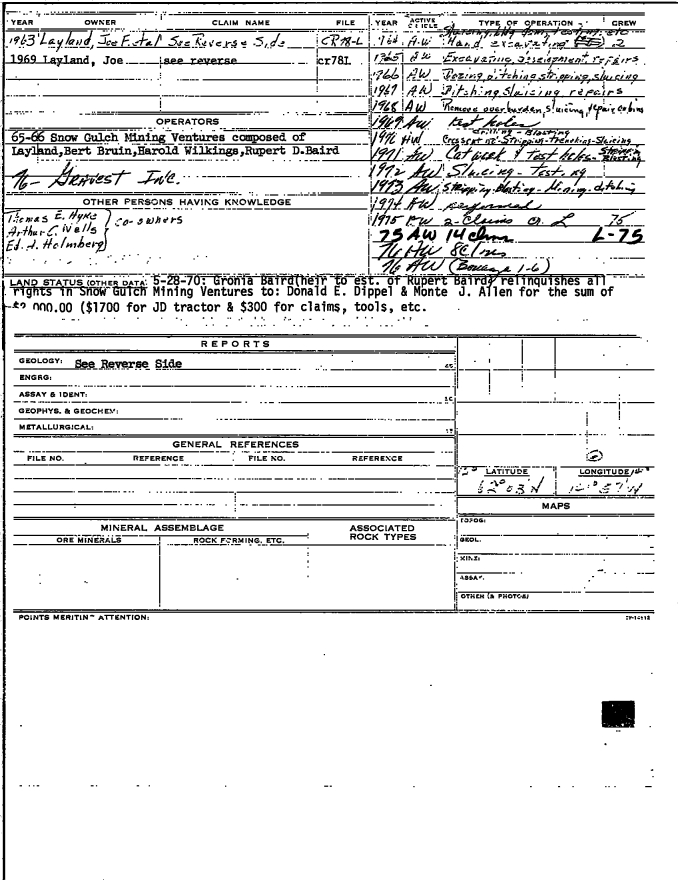 YEAR OWNER CLAIM NAME FILE
1963 Layland, Joe F. etal See Reverse Side CR78-L
1969 Layland, Joe see reverse cr78L
OPERATORS
65-66 Snow Gulch Mining Ventures composed of
Layland,Bert Bruin,Harold Wilkings,Rupert D.Baird
76- Gravest Inc.
OTHER PERSONS HAVING KNOWLEDGE
Thomas E.
Arthur C. Wells co-owners
Ed. J. Holmberg
YEAR ACTIVE TYPE OF OPERATION CREW
testing, etc
1964 A.W. Hand excavating 2
1965 AW Excavating, development, repairs
1966 AW Dozing, ditching, stripping, sluicing
1967 AW Ditching, sluicing, repairs
1968 AW Remove overburden, sluicing, repair cabins
1969 AW Test holes
Drilling-Blasting
1970 AW Stripping-Trenching-Sluicing
1971 AW Cat work & Test holes- Stripping Blasting
1972 AW Sluicing- Testing
1973 AW Stripping-Blasting-Mining-ditching
1974 AW performed
1975 AW 2-Claims L 75
75 AW 14 clms L-75
76 AW 8
76 AW (Bonanza 1-6)
LAND STATUS (OTHER DATA: 5-28-70: Gronia Baird(heir to est. of Rupert Baird) relinquishes all
rights in Snow Gulch Mining Ventures to: Donald E. Dippel & Monte J. Allen for the sum of
000.00 ($1700 for JD tractor & $300 for claims, tools, etc.
REPORTS
GEOLOGY: See Reverse Side
ENGRG:
ASSAY & IDENT:
GEOPHYS. & GEOCHEM:
METALLURGICAL:
GENERAL REFERENCES
FILE NO. REFERENCE FILE NO. REFERENCE
LATITUDE LONGITUDE
62°03'N
MAPS
MINERAL ASSEMBLAGE ASSOCIATED
ROCK TYPES
ORE MINERALS ROCK FORMING, ETC.
TOPOG:
GEOL.
ASSAY.
OTHER (& PHOTOS)
POINTS MERITING ATTENTION: